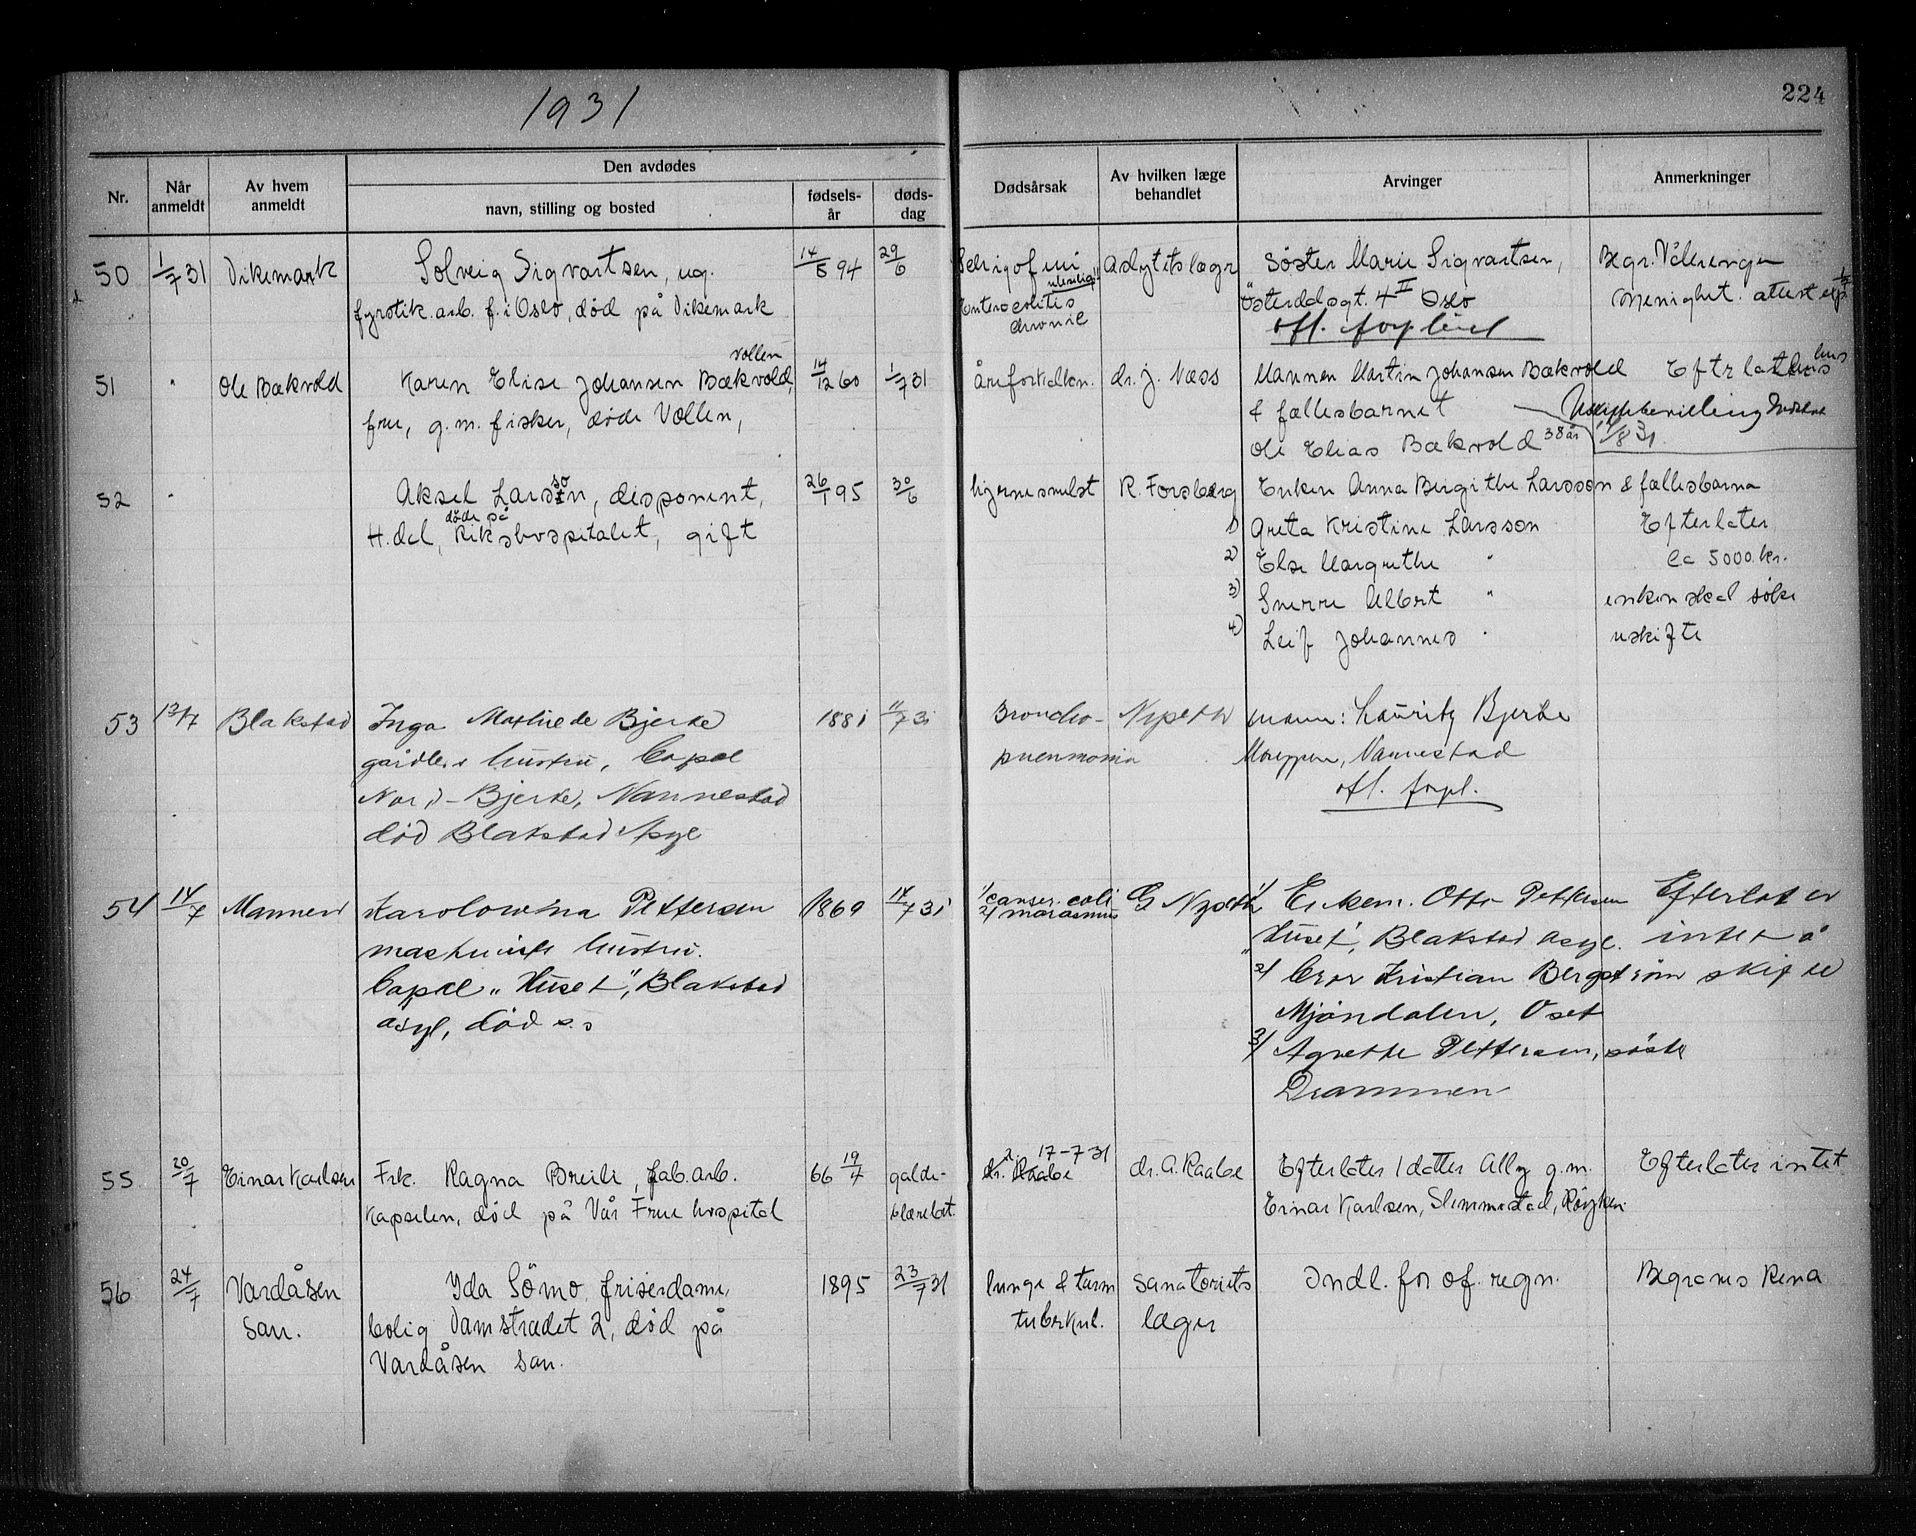 1931
224
Nr.
Når anmeldt
Av hvem anmeldt
Den avdødes
navn, stilling og bosted
fødsels-år
døds-dag
Dødsårsak
Av hvilken læge behandlet
Arvinger
Anmerkninger
50 1/7 31 Dikemark Solveig Sigvartsen, ug. 14/5 94 29/6 Asylets læge Søster Marie Sigvartsen, Begr. Vålerengen
fyrstik.arb. f. i Oslo, død på Dikemark Enterocolitis Österdalsgt. 4 II Oslo Menighet. attest
chronic off. forpleiet
Vollen hus
51 " Ole Bækvold Karen Elise Johansen Bækvold, 14/12 60 1/7 31 åreforkalkn. dr. J. Næss Mannen Martin Johansen Bækvold Efterlates
fru, g.m. fisker, døde Vollen, & fællesbarnet Uskiftebevilling
Ole Elias Bækvold 38 år 1/8 31
52 " Aksel Larsson, disponent, 26/1 95 30/6 hjernesvulst R. Forsberg Enken Anna Birgithe Larsson & fællesbarna
døde på
H.dal, Rikshospitalet, gift 1) Greta Kristine Larsson Efterlater
2) Else Margrethe " Ca 5000 kr.
3) Sverre Albert " enken skal söke
4) Leif Johannes " uskifte
53 13/7 Blakstad Inga Mathilde Bjerke 1881 11/7 31 Broncho- mann: Lauritz Bjerke
gårdbr. hustru, Bopæl pneumonia Moreppen, Nannestad
Nord-Bjerke, Nannestad off. forpl.
død Blakstad Asyl
54 14/7 Mannen Karolovina Pettersen 1869 14/7 31 1/ cancer. coli 1/ Enkem. Otto Pettersen Efterlot er
2/ marasmus
maskinists hustru. "Huset", Blakstad asyl. intet å
Bopæl "Huset", Blakstad 2/ Bror Kristian Bergström skifte
asyl, død s.s Mjøndalen, Oset
3/ Agnethe Pettersen, søster
Drammen
55 20/7 Einar Karlsen Frk. Ragna Breili, fab.arb. 66 19/7 galde- dr. Raabe 17-7-31 dr. A. Raabe Efterlater 1 datter Ally g.m. Efterlater intet
Kapselen, død på Vår Frue hospital blærebet. Einar Karlsen, Slemmestad, Røyken
56 24/7 Vardåsen Yda Sömo friserdame, 1895 23/7 31 lunge & tarm Sanatoriets Indl. for of. regn. Begraves Rena
San. bolig Damstrædet 2, død på tuberkul. læger
Vardåsen San.